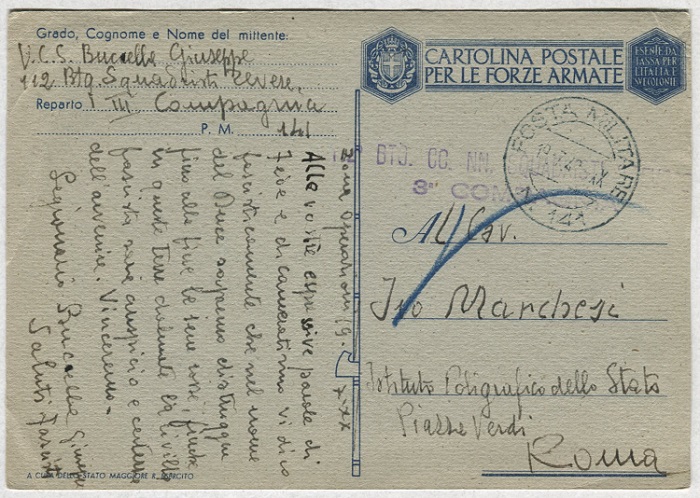 Grado, Cognome e Nome del mittente:
V.C.S. Bucella Giuseppe
112 Btg. Squadristi Tevere
Reparto I III Compagnia
P. M. 141
CARTOLINA POSTALE
PER LE FORZE ARMATE
ESENTE DA
TASSA PER
L'ITALIA E
SUE COLONIE
POSTA MILITARE
N. 141
BTG. CC. NN.
3ª COM
Al Cav.
Ivo Marchesi
Istituto Poligrafico dello Stato
Piazza Verdi
Roma
Zona Operazioni 19
XX
Alle vostre espressive parole di
fede e di cameratismo vi dico
fascisticamente che nel nome
del Duce sapremo distruggere
fino alla fine le iene rosse, finché
in queste terre la civiltà
fascista sarà auspicio e certezza
dell'avvenire. Vinceremo.
Legionario Bucella Giuseppe
Saluti Fascisti
A CURA DELLO STATO MAGGIORE R. ESERCITO